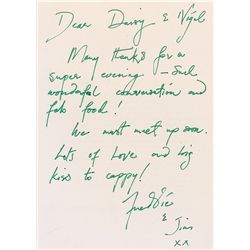 Dear Daisy & Nigel
Many thanks for a
super evening! - Such
wonderful conversation and
fab food!
We must meet up soon.
Lots of Love and big
kiss to cappy!
Freddie
& Jim
xx